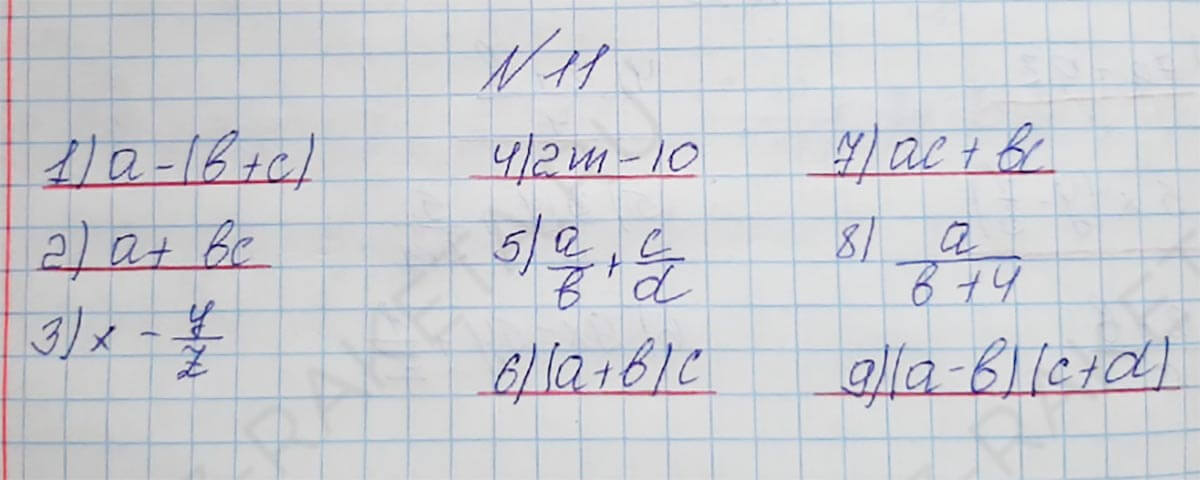 N 11
1) a-(в+c)
2) a+ вc
3) x - y/z
4) 2m-10
5) a/в + c/d
6) (a+в)c
7) ac + вc
8) a/(в+4)
9) (a-в)(c+d)